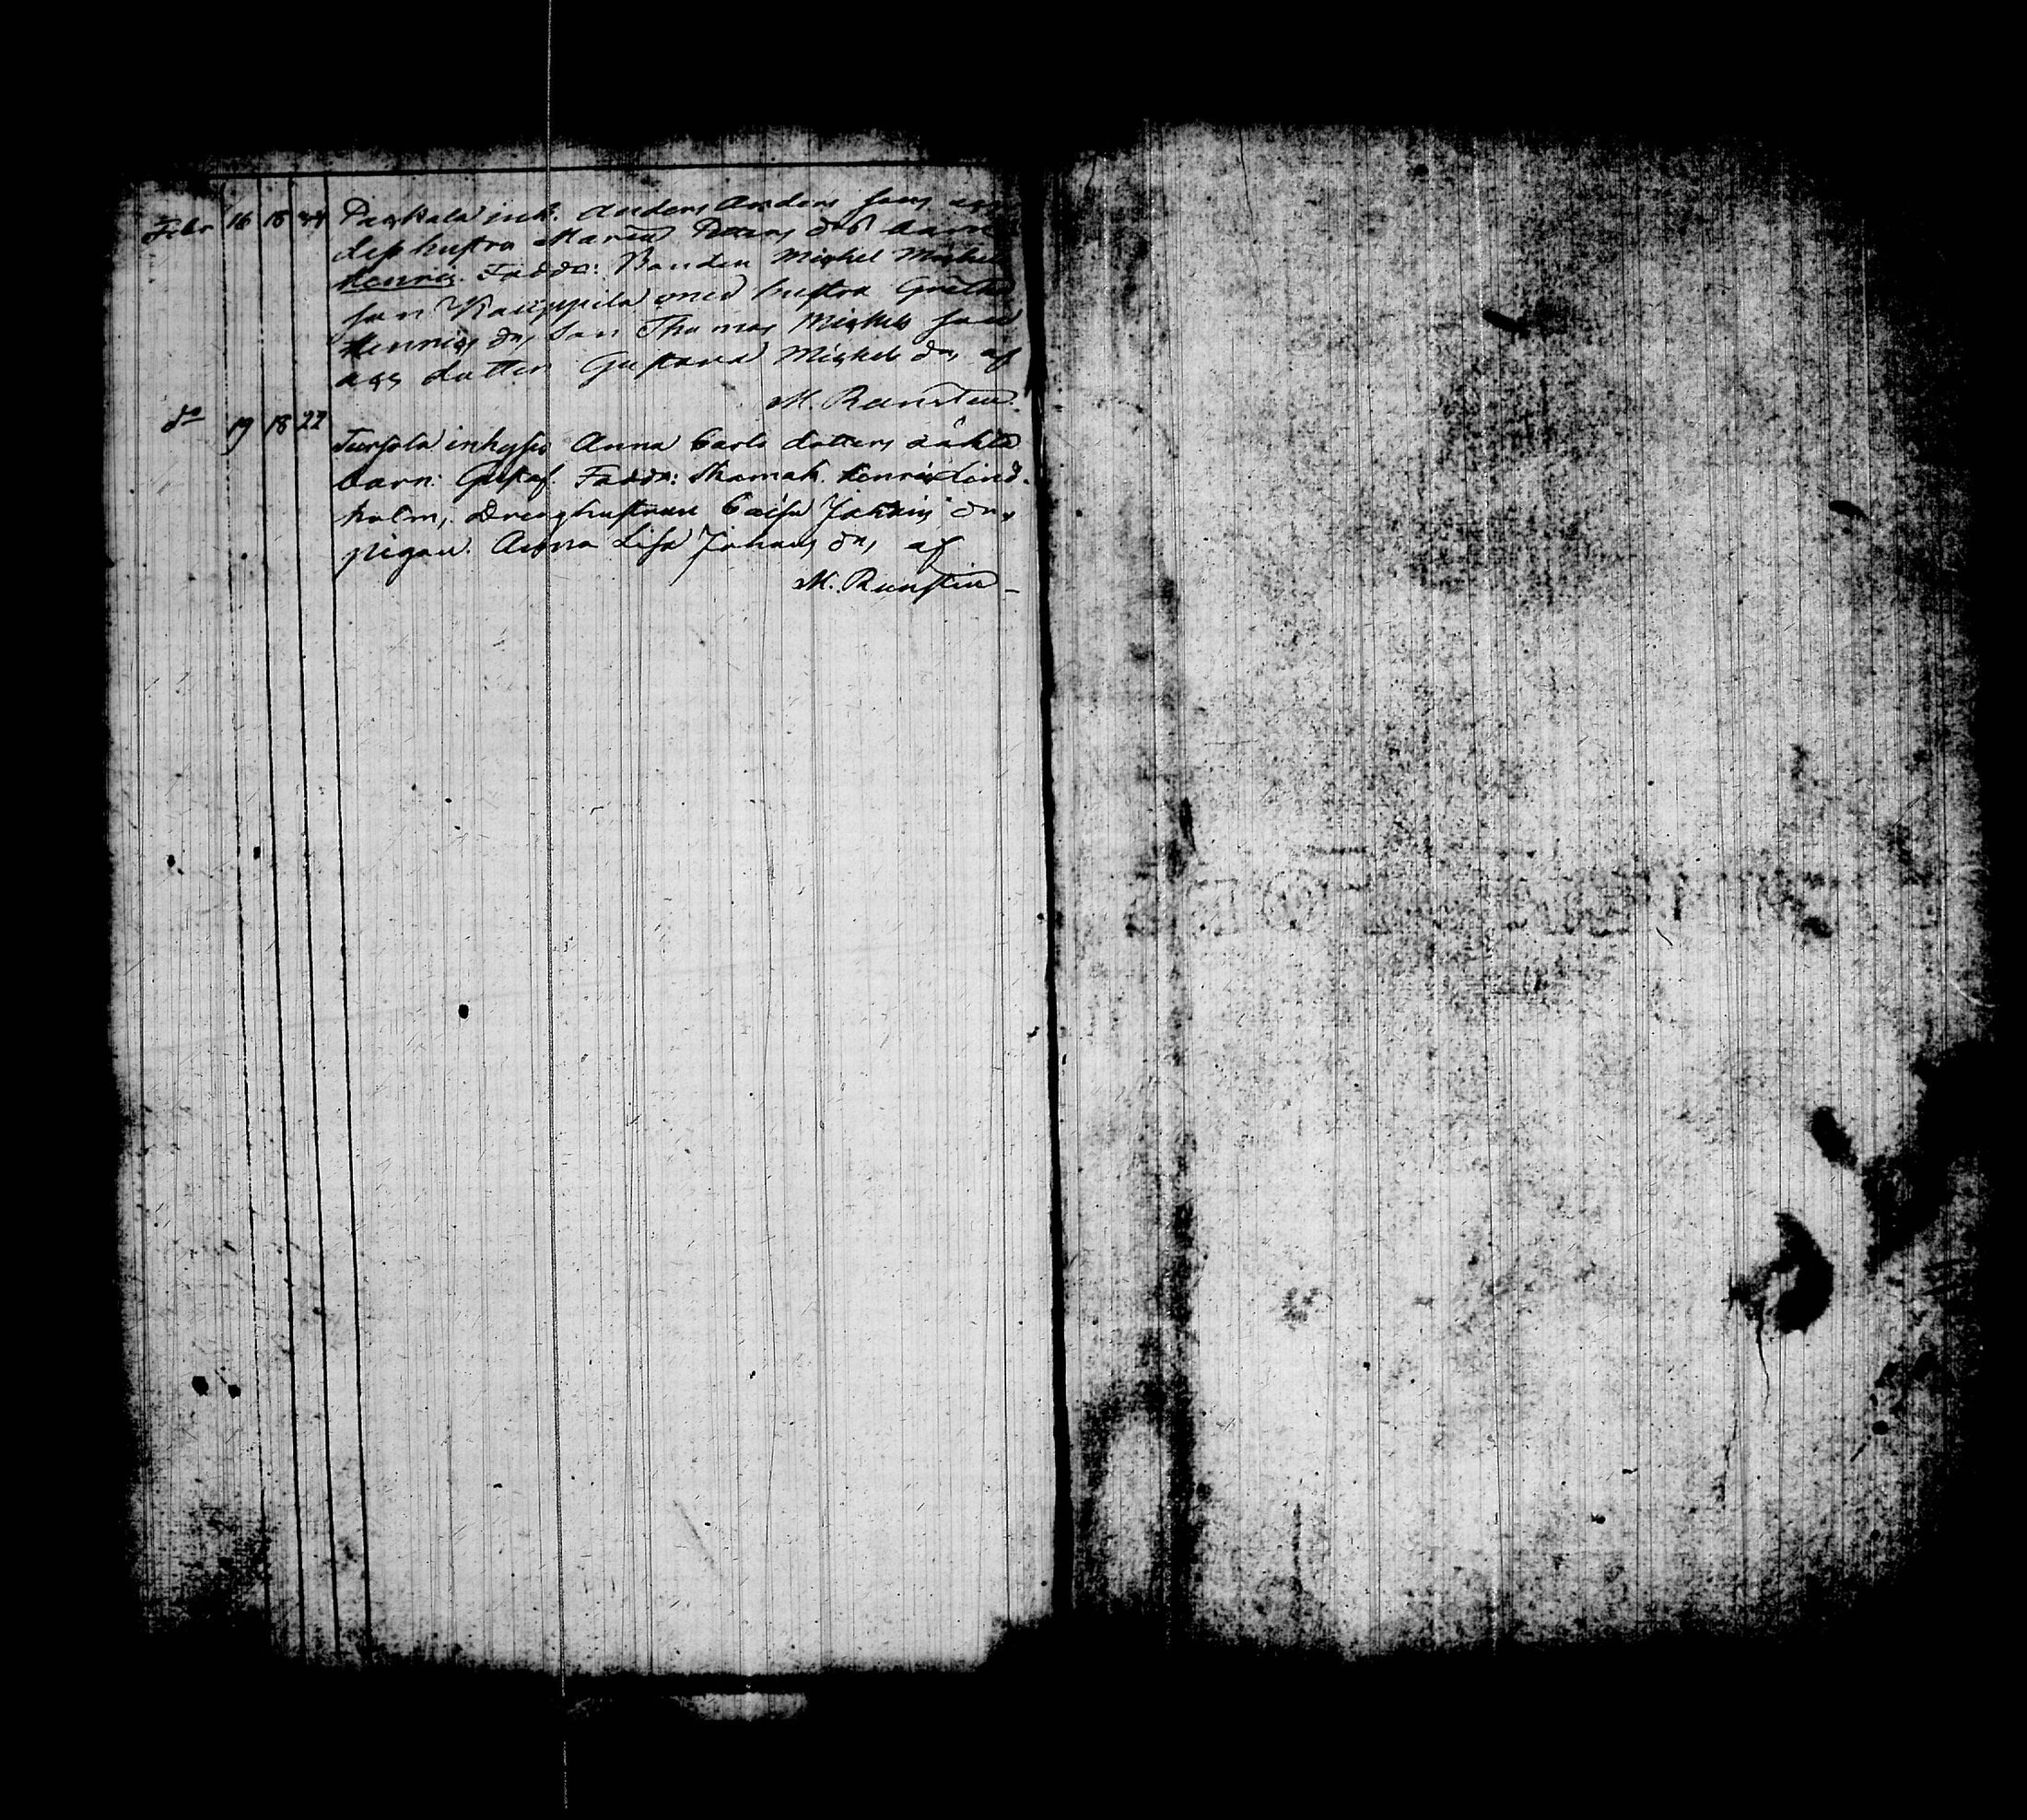 Febr 16 18 Paskala inh. Anders Anders sons och
dess hustru Maria ds barn
Henric. Faddr: Bonden Michel Michels
son Kauppila med hustru Greta
Henrics dr, son Thomas Michels son
och dotter Gustava Michels dr, af
M. Runsten.
do 19 18 22
Tursola inhyses Anna Carls dotters oäkta
barn: Gustaf. Faddr: Skomak. Henric Lind-
holm, Drenghustrun Caisa Johans dr,
pigan. Anna Lisa Johans dr, af
M. Runsten